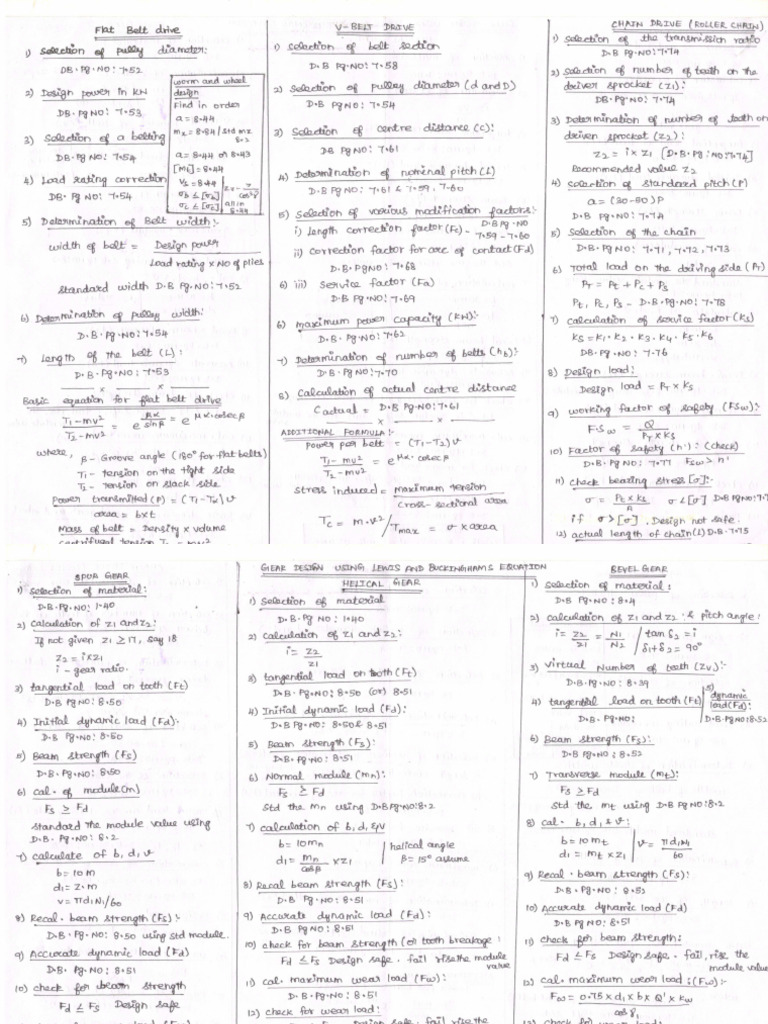 Flat Belt drive
1) Selection of pully diameter:
DB. Pg. NO: 7.52
2) Design power in KN
DB. Pg NO: 7.53
3) Selection of a belting
DB. Pg NO: 7.54
4) Load rating correction
DB. Pg NO: 7.54
worm and wheel
design
Find in order
a = 8.44
mx = 8.84 / std mx
8.2
a = 8.44 or 8.43
[Mt] = 8.44
Vs = 8.44
σb ≤ [σb]
σc ≤ [σc]
all in
8.44
5) Determination of Belt width:
width of belt = Design power
Load rating × NO of plies
Standard width D.B Pg NO: 7.52
6) Determination of pulley width:
D.B. Pg. NO: 7.54
7) Length of the belt (L):
D.B. Pg NO: 7.53
Basic equation for flat belt drive
T1 - mv² / T2 - mv² = e^(μα / sin β) = e^(μα. cosec β)
where, β - Groove angle (180° for flat belts)
T1 - tension on the tight side
T2 - tension on slack side
Power transmitted (P) = (T1 - T2) v
area = b×t
Mass of belt = Density × volume
V-BELT DRIVE
1) Selection of belt section
D.B Pg. NO: 7.58
2) Selection of pulley diameter (d and D)
D.B Pg NO: 7.54
3) Selection of centre distance (C):
DB Pg NO: 7.61
4) Determination of nominal pitch (L)
D.B Pg NO: 7.61 & 7.59, 7.60
5) Selection of various modification factors:-
i) Length correction factor (Fc) - D.B Pg. NO 7.59 - 7.60
ii) correction factor for arc of contact (Fd)
D.B. Pg NO: 7.68
iii) Service factor (Fa)
D.B Pg NO: 7.69
6) Maximum power capacity (KN):
D.B Pg NO: 7.62
7) Determination of number of belts (nb):
D.B Pg NO: 7.70
8) Calculation of actual centre distance
C actual = D.B Pg NO: 7.61
ADDITIONAL FORMULA:-
Power per belt = (T1 - T2) v
T1 - mv² / T2 - mv² = e^(μα. cosec β)
stress induced = maximum tension
cross-sectional area
Tc = m.v² / Tmax = σ × area
CHAIN DRIVE (ROLLER CHAIN)
1) Selection of the transmission ratio
D.B Pg NO: 7.74
2) Selection of number of teeth on the
driver sprocket (z1):
DB. Pg NO: 7.74
3) Determination of number of teeth on
driven sprocket (z2):
z2 = i × z1 [D.B Pg: NO: 7.74]
Recommended value z2
4) Selection of standard pitch (P)
a = (30-50)P
D.B Pg NO: 7.74
5) Selection of the chain
D.B Pg NO: 7.71, 7.72, 7.73
6) Total load on the driving side (PT)
PT = Pt + Pc + Ps
Pt, Pc, Ps - D.B. Pg NO: 7.78
7) calculation of service factor (Ks)
KS = K1. K2. K3. K4. K5. K6
DB. Pg NO: 7.76
8) Design load:
Design load = PT × KS
9) working factor of safety (FSw):
F.S w = Q / PT × KS
10) Factor of safety (n'): (check)
D.B. Pg NO: 7.77 FSw > n'
11) check bearing stress [σ]:
σ = Pt × Ks / A σ < [σ]
if σ > [σ]. Design not safe.
12) actual length of chain (L) D.B. 7.75
GEAR DESIGN USING LEWIS AND BUCKINGHAMS EQUATION
SPUR GEAR
1) Selection of material:
D.B. Pg. NO: 1.40
2) Calculation of z1 and z2:
If not given z1 ≥ 17, say 18
z2 = i × z1
i - gear ratio.
3) tangential load on tooth (Ft)
D.B Pg NO: 8.50
4) Initial dynamic load (Fd):
D.B Pg NO: 8.50
5) Beam strength (Fs)
D.B. Pg NO: 8.50
6) Cal. of module (m)
Fs ≥ Fd
Standard the module value using
D.B. Pg NO: 8.2
7) calculate of b, d, v
b = 10 m
d1 = z.m
v = πd1N1/60
8) Recal. beam strength (Fs):-
D.B. Pg NO: 8.50 using std module.
9) Accurate dynamic load (Fd)
D.B. Pg NO: 8.51
10) check for beam strength
Fd ≤ Fs Design safe
HELICAL GEAR
1) Selection of material
D.B. Pg NO: 1.40
2) Calculation of z1 and z2:
i = z2 / z1
3) tangential load on tooth (Ft)
D.B. Pg NO: 8.50 (or) 8.51
4) Initial dynamic load (Fd):
D.B Pg NO: 8.50 & 8.51
5) Beam strength (Fs):
D.B Pg NO: 8.51
6) Normal module (mn):
Fs ≥ Fd
Std the mn using D.B Pg. NO: 8.2
7) calculation of b, d, & v
b = 10 mn
d1 = mn / cosβ × z1
helical angle
β = 15° assume
8) Recal beam strength (Fs):
D.B. Pg NO: 8.51
9) Accurate dynamic load (Fd):
D.B. Pg NO: 8.51
10) check for beam strength (or) tooth breakage:
Fd ≤ Fs Design safe. fail, rise the module
value
11) cal. maximum wear load (Fw):
D.B. Pg NO: 8.51
12) check for wear:
Design safe. fail rise the
BEVEL GEAR
1) Selection of material:
D.B Pg NO: 8.4
2) calculation of z1 and z2: & pitch angle:
i = z2 / z1 = N1 / N2
tan δ2 = i
δ1 + δ2 = 90°
3) Virtual Number of teeth (Zv):
D.B. Pg NO: 8.39
4) tangential load on tooth (Ft)
D.B. Pg NO:
5) dynamic
load (Fd):
D.B. Pg NO: 8.52
6) Beam strength (Fs):
D.B. Pg NO: 8.52
7) Transverse module (mt):
Fs ≥ Fd
Std the mt using D.B Pg NO: 8.2
8) cal. b, d, & v:
b = 10 mt
d1 = mt × z1
v = πd1N1 / 60
9) Recal. beam strength (Fs):
D.B. Pg. NO: 8.52
10) Accurate dynamic load (Fd)
D.B. Pg NO: 8.51
11) check for beam strength:
Fd ≤ Fs Design safe. fail, rise the
module value
12) cal. maximum wear load: (Fw):
Fw = 0.75 × d1 × b × Q' × kw
cos δ1